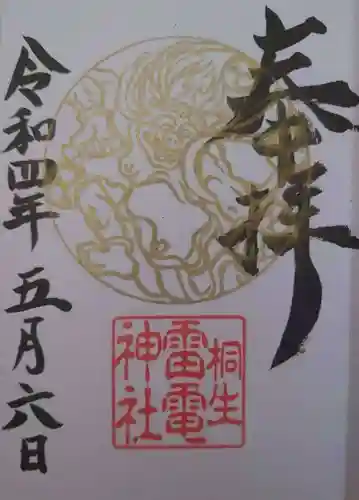 奉拝
桐生
雷電
神社
令和四年五月六日